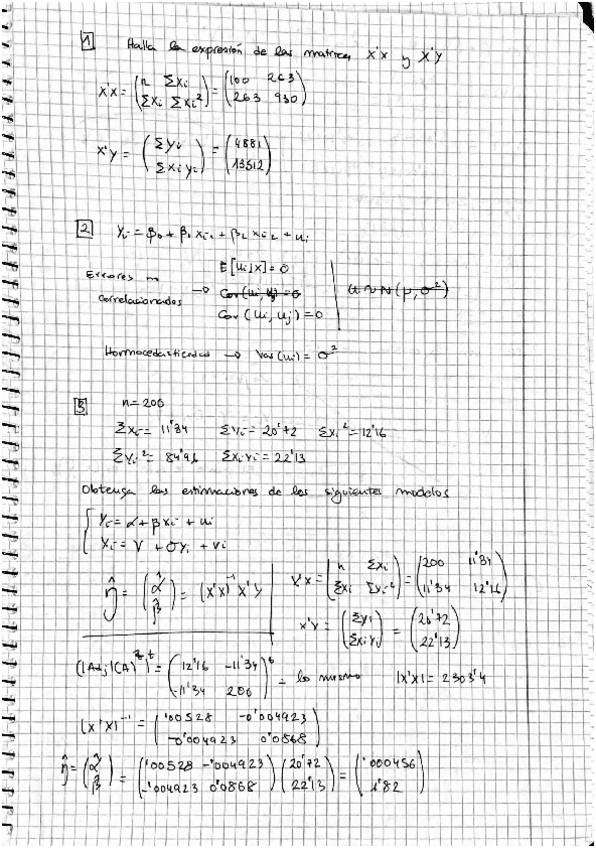 1 Halla la expresión de las matrices X'X y X'Y
X'X = (n Σxi / Σxi Σxi²) = (100 263 / 263 930)
X'Y = (Σyi / Σxiyi) = (4881 / 13512)
2 Yi = β0 + β1 xi1 + β2 xi2 + ui
Errores no correlacionados → E[ui|X] = 0
Cov(ui, uj) = 0
Cov(ui, uj) = 0
u ~ N(μ, σ²)
Homocedasticidad → Var(ui) = σ²
3 n = 200
Σxi = 11'34 Σyi = 20'72 Σxi² = 12'16
Σyi² = 84'96 Σxiyi = 22'13
Obtenga las estimaciones de los siguientes modelos
{ Yi = α + βxi + ui
Xi = γ + σyi + vi
η̂ = (α̂ / β̂) = (X'X)⁻¹ X'Y
X'X = (n Σxi / Σxi Σxi²) = (200 11'34 / 11'34 12'16)
X'Y = (Σyi / Σxiyi) = (20'72 / 22'13)
= (12'16 -11'34 / -11'34 200)ᵗ = lo mismo |X'X| = 2303'4
(X'X)⁻¹ = ('00528 -0'004923 / -0'004923 0'0868)
η̂ = (α̂ / β̂) = ('00528 -'004923 / -'004923 0'0868) (20'72 / 22'13) = ('000456 / 1'82)